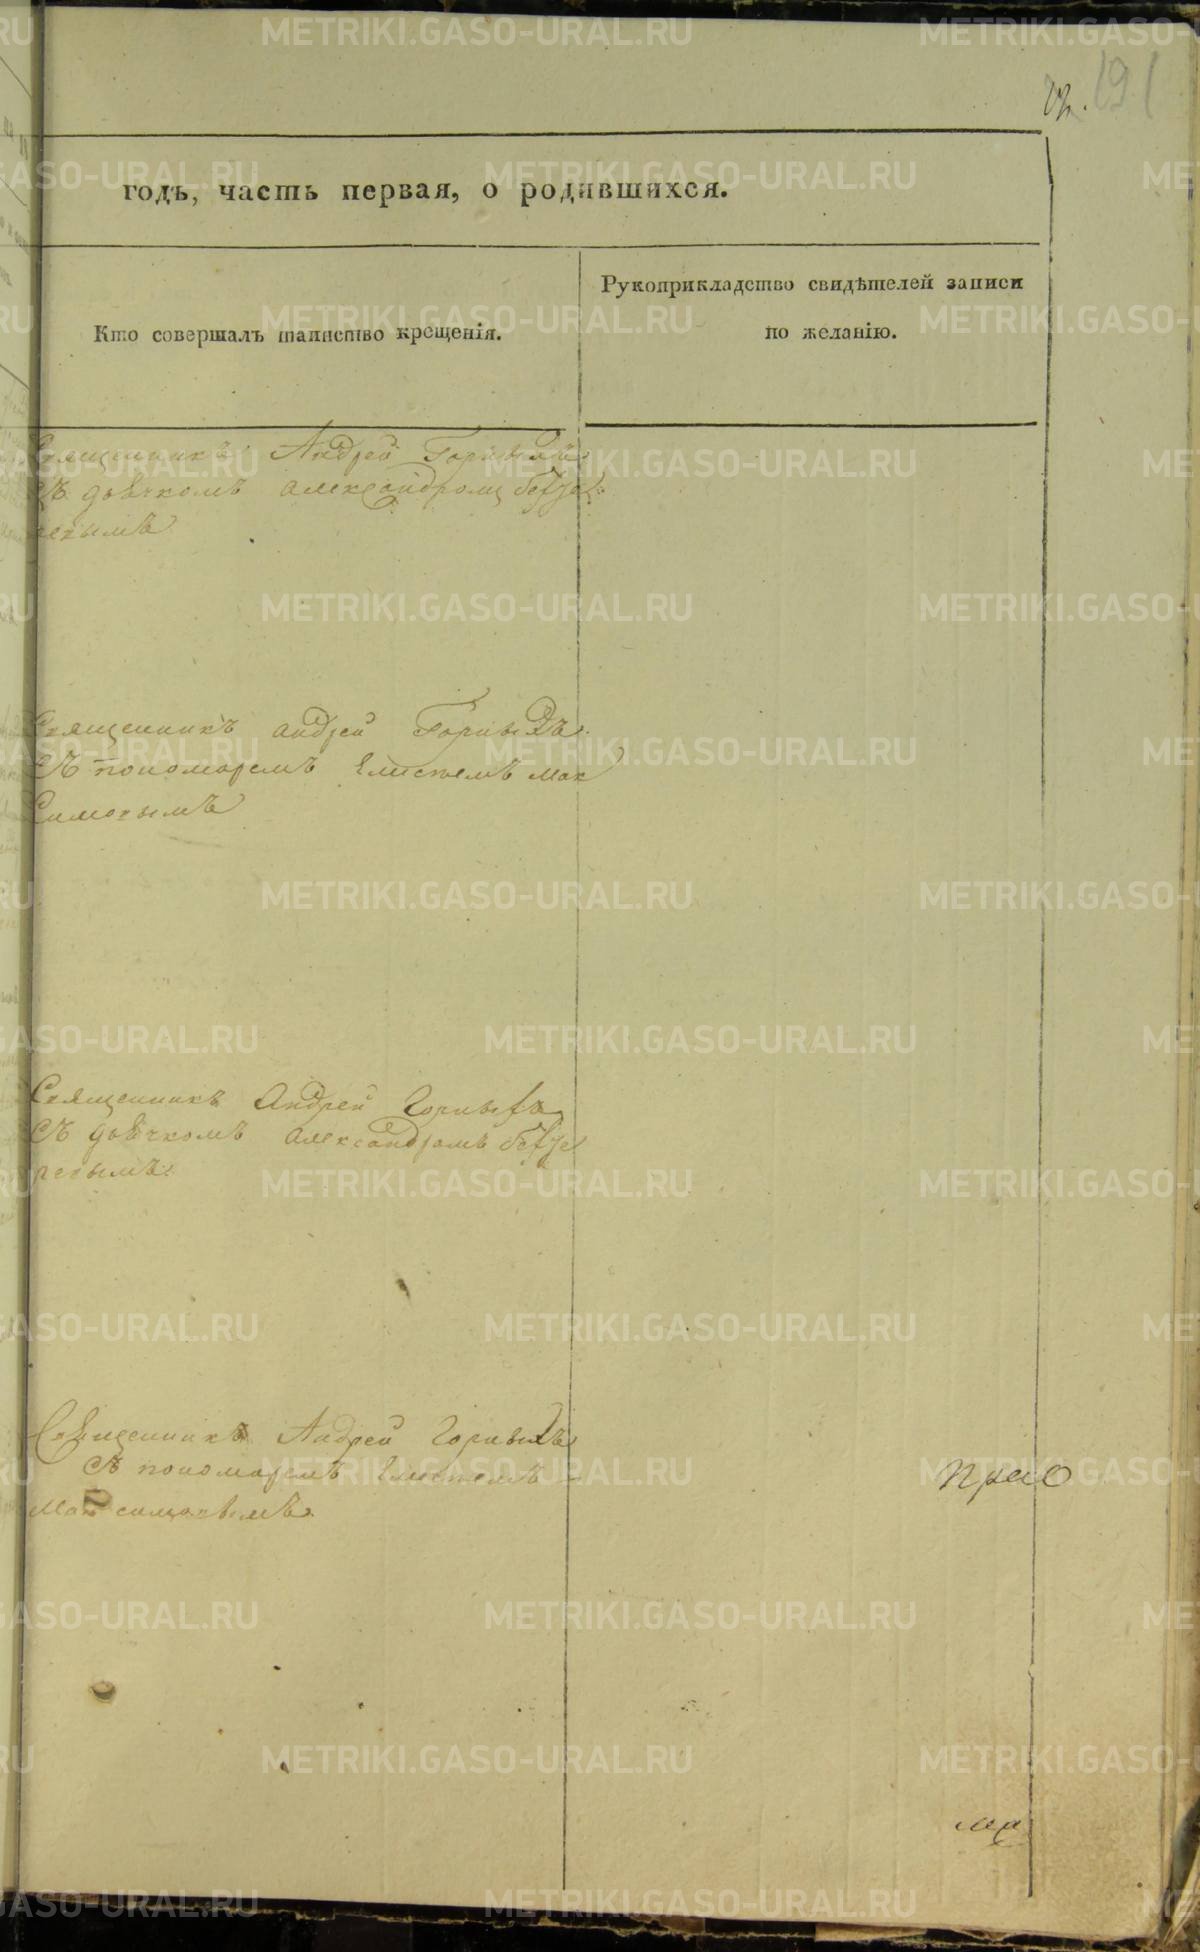 191
годъ, часть первая, о родившихся.
Кто совершалъ таинство крещенія.
Рукоприкладство свидѣтелей записи
по желанію.
Священникъ Андрей Горныхъ
съ дьячкомъ александромъ
Священникъ андрей Горныхъ
съ пономаремъ Елисѣемъ Мак
симовымъ
Священникъ Андрей Горныхъ
съ дьячкомъ александромъ
Священникъ Андрей Горныхъ
съ пономаремъ Елисѣемъ
Максимовымъ
METRIKI.GASO-URAL.RU